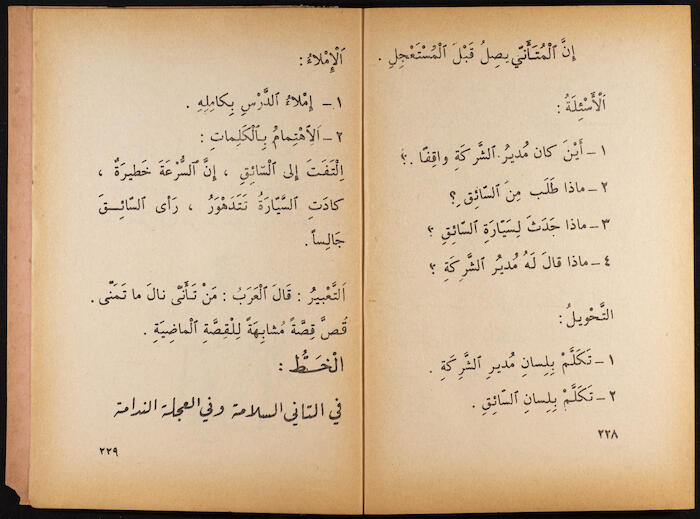 إِنَّ ٱلْمُتَأَنّي يصِلُ قَبْلَ ٱلْمُسْتَعْجِلِ .
ٱلْأَسْئِلَةُ :
١ – أَيْنَ كان مُديرُ ٱلشَّرِكَةِ واقِفًا .؟
٢ – ماذا طَلَب مِنَ ٱلسّائِقِ ؟
٣ – ماذا حَدَثَ لِسَيّارَةِ ٱلسّائِقِ ؟
٤ – ماذا قالَ لَهُ مُديرُ ٱلشَّرِكَةِ ؟
التَّحْويلُ :
١ – تَكَلَّمْ بِلِسانِ مُديرِ ٱلشَّرِكَةِ .
٢ – تَكَلَّمْ بِلِسانِ ٱلسّائِقِ .
٢٢٨
ٱلْإِمْلاءُ :
١ – إِمْلاءُ ٱلدَّرْسِ بِكامِلِهِ .
٢ – ٱلِٱهْتِمامُ بِٱلْكَلِماتِ :
اِلْتَفَتَ إِلى ٱلسّائِقِ ، إِنَّ ٱلسُّرْعَةَ خَطيرَةٌ ،
كادَتِ ٱلسَّيّارَةُ تَتَدَهْوَرُ ، رَأى ٱلسّائِـقَ
جَالِساً .
اَلتَّعْبيرُ : قَالَ ٱلْعَرَبُ : مَنْ تَأَنّى نالَ ما تَمَنّى .
قُصَّ قِصَّةً مُشابِهَةً لِلْقِصَّةِ ٱلْماضِيَةِ .
ٱلْخَـطُّ :
في التاني السلامة وفي العجلة الندامة
٢٢٩